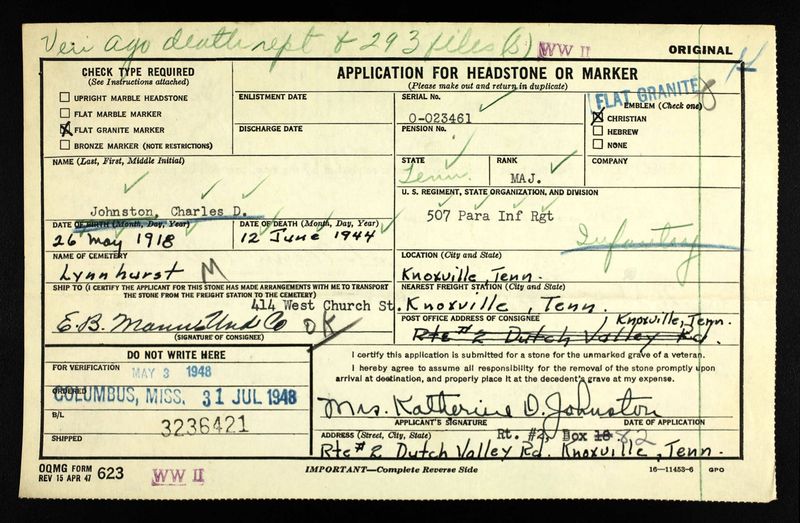 Veri Ago death rept & 293 files(s) WW II
ORIGINAL
CHECK TYPE REQUIRED
(See Instructions attached)
UPRIGHT MARBLE HEADSTONE
FLAT MARBLE MARKER
X FLAT GRANITE MARKER
BRONZE MARKER (NOTE RESTRICTIONS)
APPLICATION FOR HEADSTONE OR MARKER
(Please make out and return in duplicate)
ENLISTMENT DATE
DISCHARGE DATE
SERIAL No.
O-023461
PENSION No.
FLAT GRANITE
EMBLEM (Check one)
X CHRISTIAN
HEBREW
NONE
NAME (Last, First, Middle Initial)
Johnston, Charles D.
STATE
Tenn.
RANK
MAJ.
COMPANY
U. S. REGIMENT, STATE ORGANIZATION, AND DIVISION
507 Para Inf Rgt
Infantry
DATE OF BIRTH (Month, Day, Year)
26 May 1918
DATE OF DEATH (Month, Day, Year)
12 June 1944
NAME OF CEMETERY
Lynnhurst M
LOCATION (City and State)
Knoxville, Tenn.
SHIP TO (I CERTIFY THE APPLICANT FOR THIS STONE HAS MADE ARRANGEMENTS WITH ME TO TRANSPORT
THE STONE FROM THE FREIGHT STATION TO THE CEMETERY)
414 West Church St.
E.B. Mann Und Co OK
(SIGNATURE OF CONSIGNEE)
NEAREST FREIGHT STATION (City and State)
Knoxville, Tenn.
POST OFFICE ADDRESS OF CONSIGNEE
Knoxville, Tenn.
Rte #2 Dutch Valley Rd.
DO NOT WRITE HERE
FOR VERIFICATION
MAY 3 1948
ORDERED
COLUMBUS, MISS. 31 JUL 1948
B/L
3236421
SHIPPED
I certify this application is submitted for a stone for the unmarked grave of a veteran.
I hereby agree to assume all responsibility for the removal of the stone promptly upon
arrival at destination, and properly place it at the decedent's grave at my expense.
Mrs. Katherine D. Johnston
APPLICANT'S SIGNATURE
DATE OF APPLICATION
ADDRESS (Street, City, State)
Rt. #2, Box 18 82
Rte #2 Dutch Valley Rd. Knoxville, Tenn.
OQMG FORM
REV 15 APR 47 623
WW II
IMPORTANT—Complete Reverse Side
16—11453-6 GPO